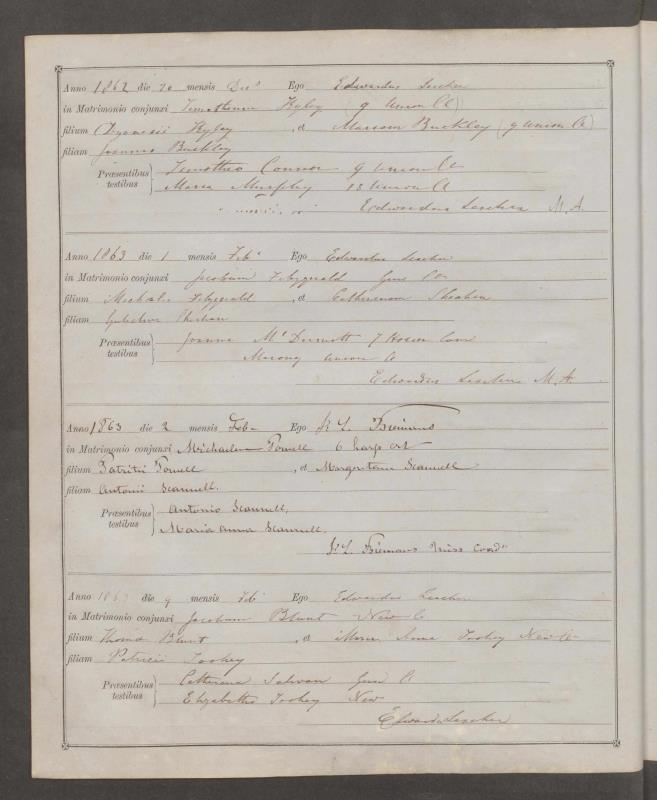 Anno 1862 die 70 mensis Decs Ego Edwardus Lescher
in Matrimonio conjunxi Timotheum Hyley (9 Union Ct)
filium Dyonisii Hyley , et Mariam Buckley (9 Union Ct)
filiam Joannis Buckley
Præsentibus Timotheo Connor 9 Union Ct
testibus Maria Murphy 13 Union Ct
Edwardus Lescher M. A.
Anno 1863 die 1 mensis Feb Ego Edwardus Lescher
in Matrimonio conjunxi Jacobum Fitzgerald Gun Ct
filium Michaelis Fitzgerald , et Catherinam Sheahan
filiam Sheahan
Præsentibus Joanna McDermott 7 Lane
testibus Union Ct
Edwardus Lescher M. A.
Anno 1863 die 2 mensis Feb- Ego
in Matrimonio conjunxi Michaelem Powell 6 harp crt
filium Patritii Powell , et Margaritam Scannell
filiam Antonii Scannell.
Præsentibus Antonio Scannell,
testibus Maria Anna Scannell.
Miss Coadr
Anno 1863 die 9 mensis Feb Ego Edwardus Lescher
in Matrimonio conjunxi Jacobum Blunt New Ct
filium Thomæ Blunt , et Mariam Anna Toohey New Ct
filiam Patricii Toohey
Præsentibus Catherina Salvan Gun Ct
testibus Elizabetha Toohey New
Edwardus Lescher